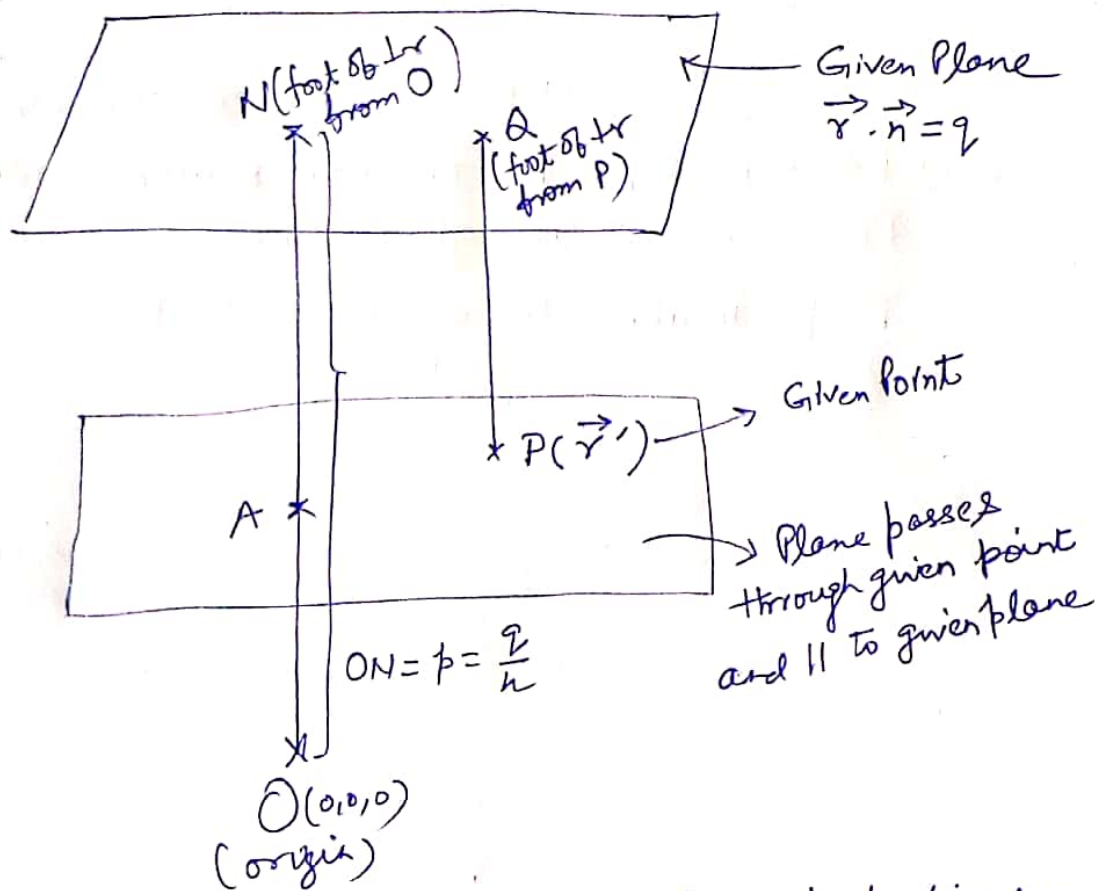 N(foot of ⊥r
from O)
Q
(foot of ⊥r
from P)
Given Plane
r⃗ . n⃗ = q
Given Point
P(r⃗ ')
A
Plane passes
through given point
and || to given plane
ON = p = q/n
O(0,0,0)
(origin)